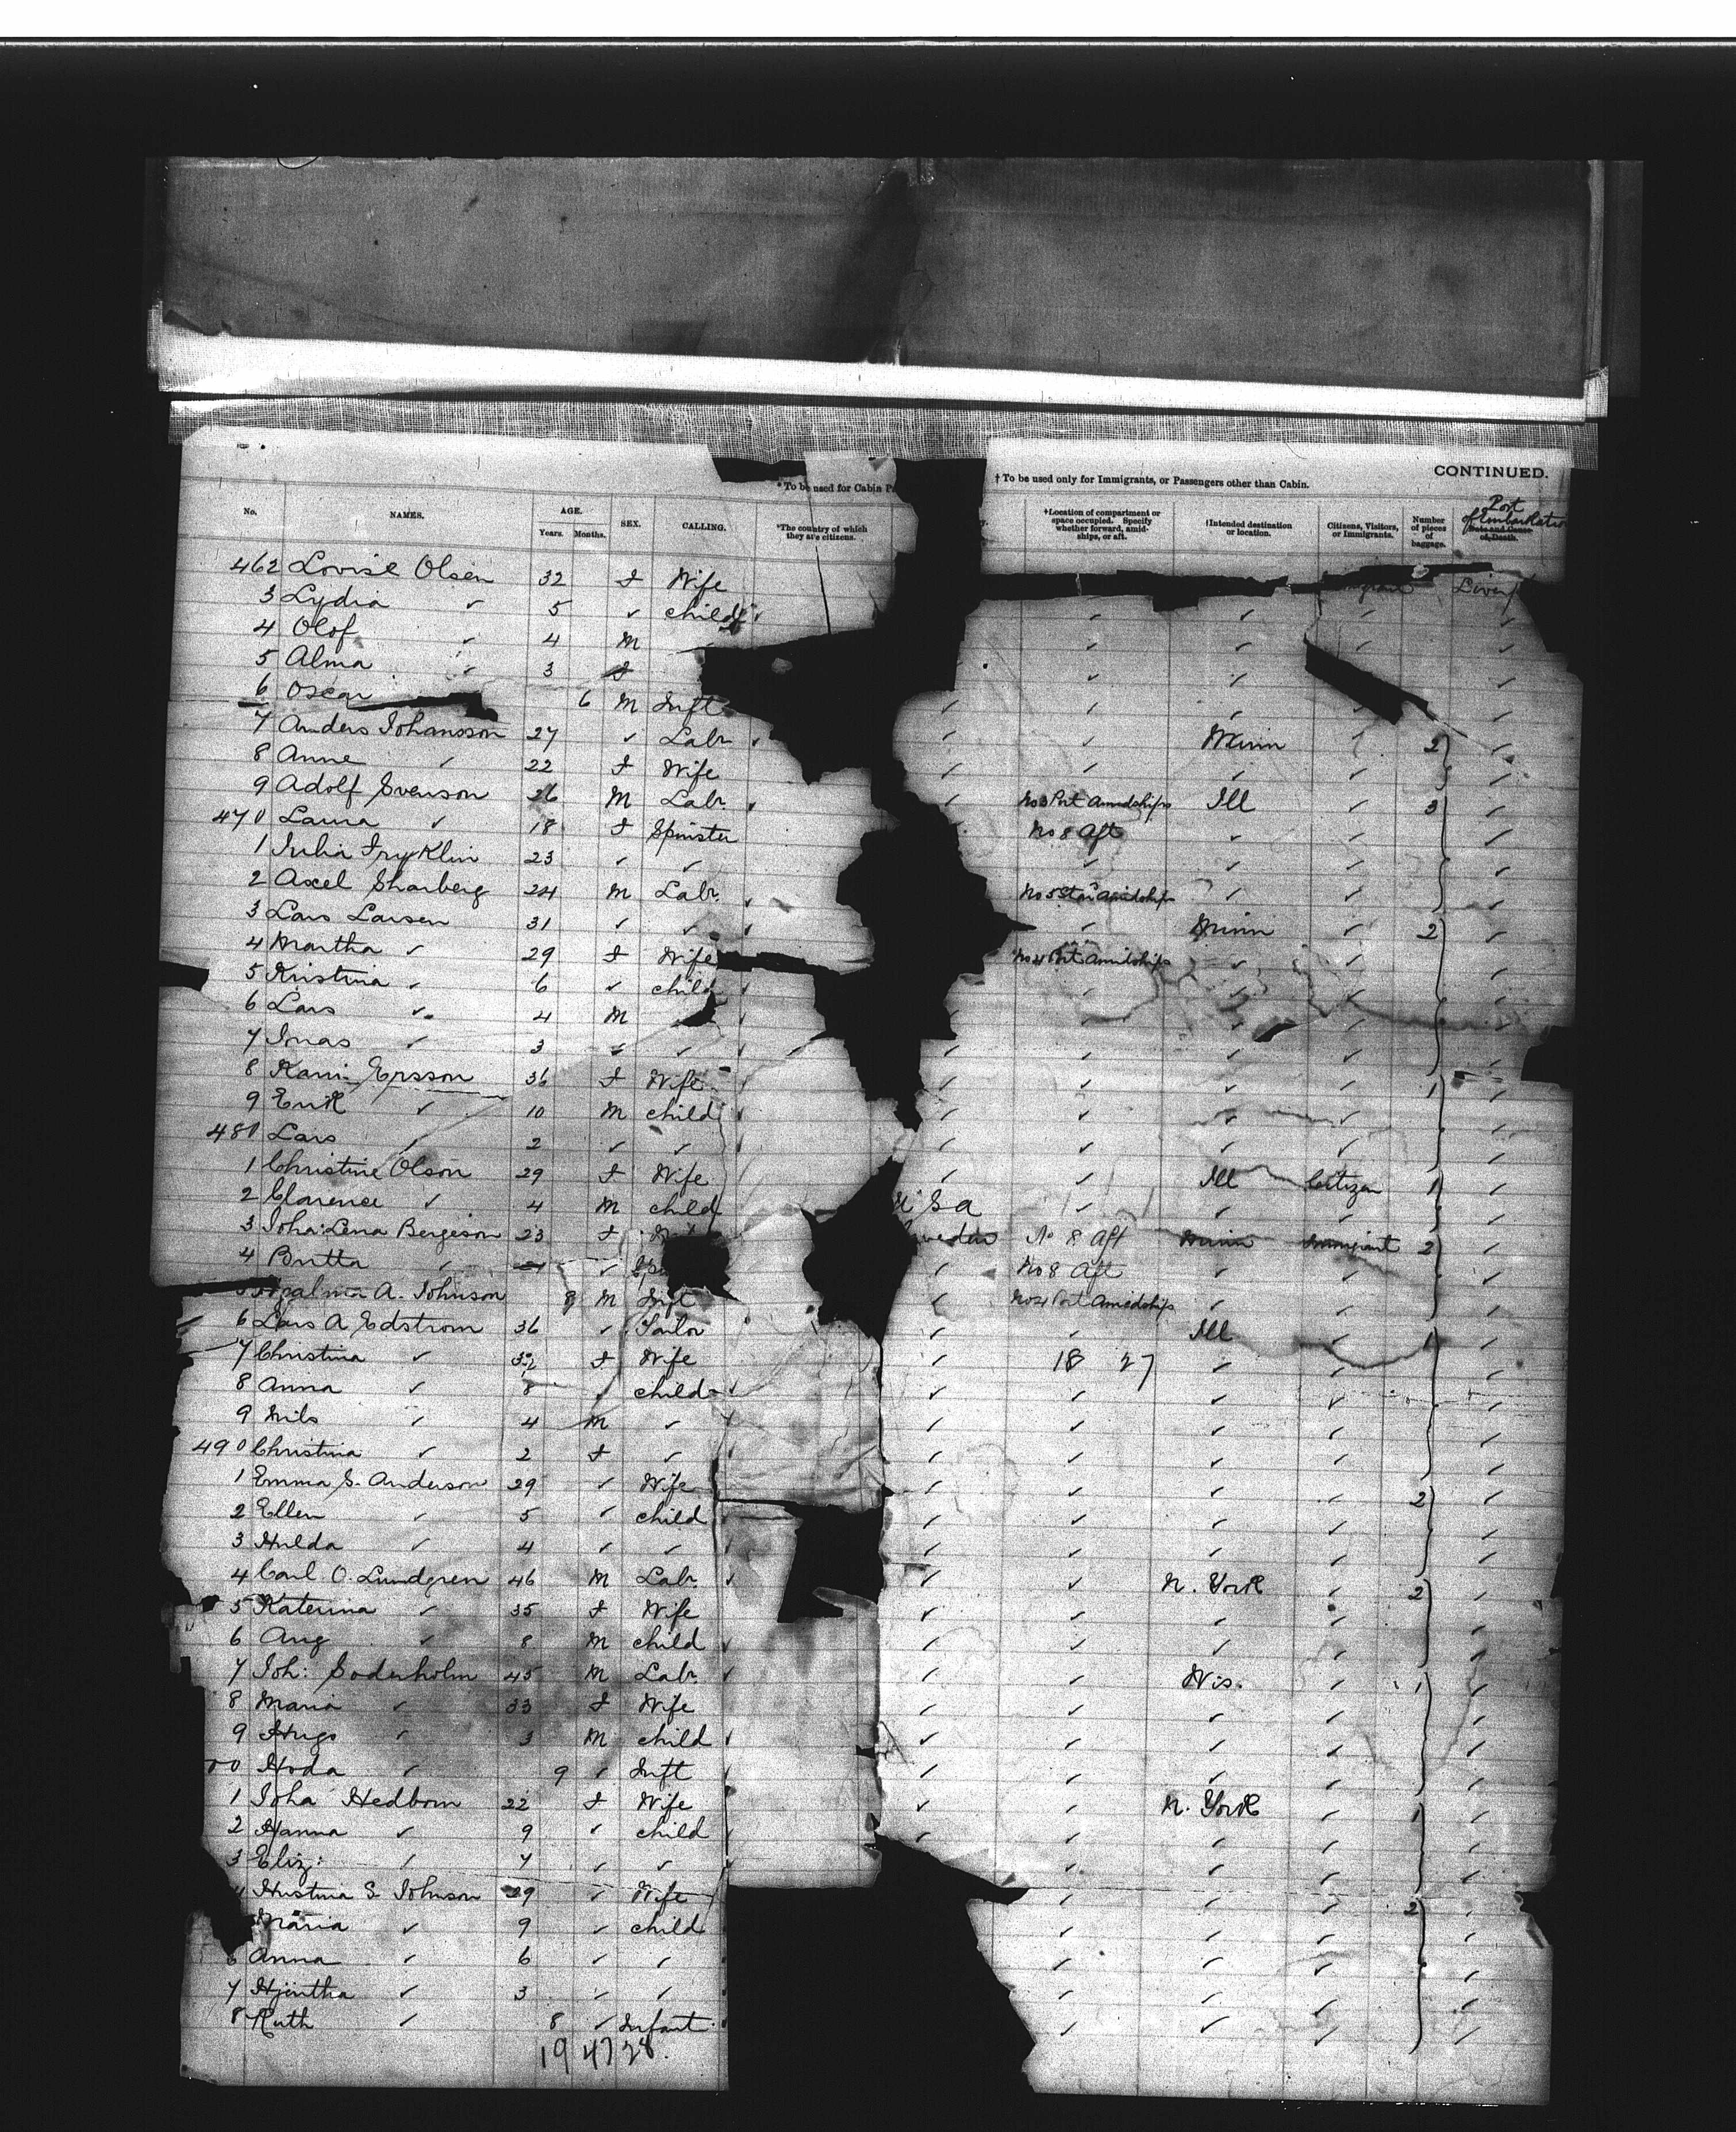 CONTINUED.
*To be used for Cabin Pa
† To be used only for Immigrants, or Passengers other than Cabin.
No. NAMES. AGE. Years. Months. SEX. CALLING. *The country of which they are citizens. †Location of compartment or space occupied. Specify whether forward, amidships, or aft. †Intended destination or location. Citizens, Visitors, or Immigrants. Number of pieces of baggage. Port of Embarkation Date and Cause of Death.
462 Lovise Olsen 32 f Wife
3 Lydia ✓ 5 ✓ child ✓ ✓ ✓ ✓
4 Olof ✓ 4 M ✓ ✓ ✓ ✓
5 Alma ✓ 3 f ✓ ✓ ✓
6 Oscar 6 M Inft ✓ ✓ ✓ ✓
7 Anders Johansson 27 ✓ Labr ✓ ✓ Minn ✓ 2 ✓
8 Anne ✓ 22 f Wife ✓ ✓ ✓ ✓ ✓
9 Adolf Svenson 26 M Labr. ✓ Port Amidships Ill ✓ 3 ✓
470 Laura ✓ 18 f Spinster No 8 Aft ✓ ✓ ✓
1 Julia Fryklin 23 ✓ ✓ ✓ ✓ ✓ ✓
2 Axel Sharberg 24 M Labr. No 5 Star Amidships ✓ ✓ ✓
3 Lars Larsen 31 ✓ ✓ ✓ Minn ✓ 2 ✓
4 Martha ✓ 29 f Wife No 4 Port Amidships ✓ ✓
5 Kristina ✓ 6 ✓ child ✓ ✓ ✓ ✓
6 Lars ✓ 4 M ✓ ✓ ✓ ✓
7 ✓ 3 ✓ ✓ ✓ ✓ ✓ ✓ ✓
8 Karin Ersson 36 f Wife ✓ ✓ ✓ ✓ 1 ✓
9 Erik ✓ 10 M child ✓ ✓ ✓ ✓ ✓
480 Lars ✓ 2 ✓ ✓ ✓ ✓ ✓ ✓ ✓
1 Christine Olson 29 f Wife ✓ ✓ Ill Citizen 1 ✓
2 Clarence ✓ 4 M child U S a ✓ ✓ ✓ ✓
3 Joha: Lena Bergeson 23 f No 8 Aft Minn Immigrant 2 ✓
4 Britta ✓ ✓ ✓ No 8 Aft ✓ ✓ ✓
A. Johnson 8 M Inft ✓ No 4 Port Amidships ✓ ✓ ✓
6 Lars A Edstrom 36 ✓ Tailor ✓ ✓ Ill ✓ 1 ✓
7 Christina ✓ 32 f Wife ✓ 18 27 ✓ ✓ ✓
8 Anna ✓ 8 ✓ child ✓ ✓ ✓ ✓ ✓
9 Nils ✓ 4 M ✓ ✓ ✓ ✓ ✓ ✓
490 Christina ✓ 2 f ✓ ✓ ✓ ✓ ✓ ✓
1 Emma S. Anderson 29 ✓ Wife ✓ ✓ ✓ ✓ 2 ✓
2 Ellen ✓ 5 ✓ child ✓ ✓ ✓ ✓ ✓
3 Hulda ✓ 4 ✓ ✓ ✓ ✓ ✓ ✓ ✓
4 Carl O. Lundgren 46 M Labr. ✓ ✓ N. York ✓ 2 ✓
5 Katerina ✓ 35 f Wife ✓ ✓ ✓ ✓ ✓
6 Aug ✓ 8 M child ✓ ✓ ✓ ✓ ✓
7 Joh: Soderholm 45 M Labr. ✓ ✓ Wis. ✓ 1 ✓
8 Maria ✓ 33 f Wife ✓ ✓ ✓ ✓ ✓
9 Hugo ✓ 3 M child ✓ ✓ ✓ ✓ ✓
00 Hoda ✓ 9 ✓ Inft ✓ ✓ ✓ ✓ ✓
1 Joha Hedbom 22 f Wife ✓ ✓ N. York ✓ 1 ✓
2 Hanna ✓ 9 ✓ child ✓ ✓ ✓ ✓ ✓
3 Eliz: ✓ 7 ✓ ✓ ✓ ✓ ✓ ✓
4 S. Johnson 29 ✓ Wife ✓ ✓ ✓ 2 ✓
Maria ✓ 9 ✓ child ✓ ✓ ✓ ✓
6 Anna ✓ 6 ✓ ✓ ✓ ✓ ✓ ✓
7 ✓ 3 ✓ ✓ ✓ ✓ ✓ ✓
8 Ruth ✓ 8 ✓ Infant ✓ ✓ ✓ ✓
19 47 28.